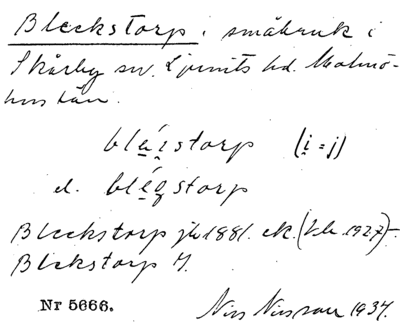 Bleckstorp, småbruk i
Skårby sn. Ljunits hd. Malmö-
hus län.
bla̤i̯storp (i̯=j)
el. blég̭storp
Bleckstorp jb 1881. ek. 1927)-
Bleckstorp
Nr 5666.
Nils Nilsson 1934.